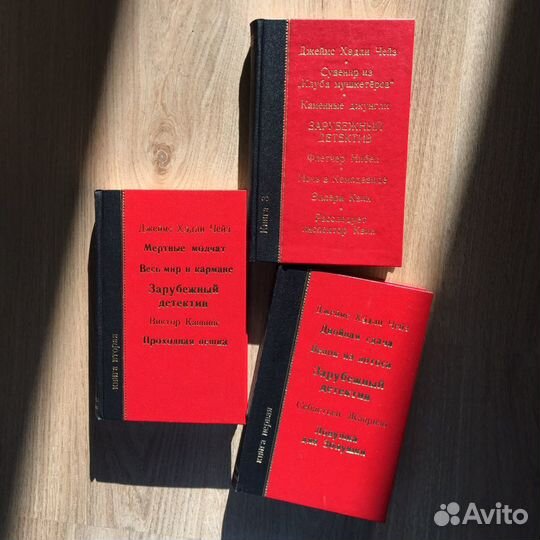 Джеймс Хадли Чейз
Сувенир из
„Клуба мушкетёров“
Каменные джунгли
ЗАРУБЕЖНЫЙ
ДЕТЕКТИВ
Флетчер Нибел
Ночь в Кэмп-Дэвиде
Эллери Квин
Расследует
инспектор Квин
Книга 3
Джеймс Хэдли Чейз
Мертвые молчат
Весь мир в кармане
Зарубежный
детектив
Виктор Каннинг
Проходная пешка
книга вторая
Джеймс Хэдли Чейз
Двойная сдача
Лотос
Зарубежный
детектив
Себастьян Жапризо
Ловушка
для Золушки
книга первая
Avito